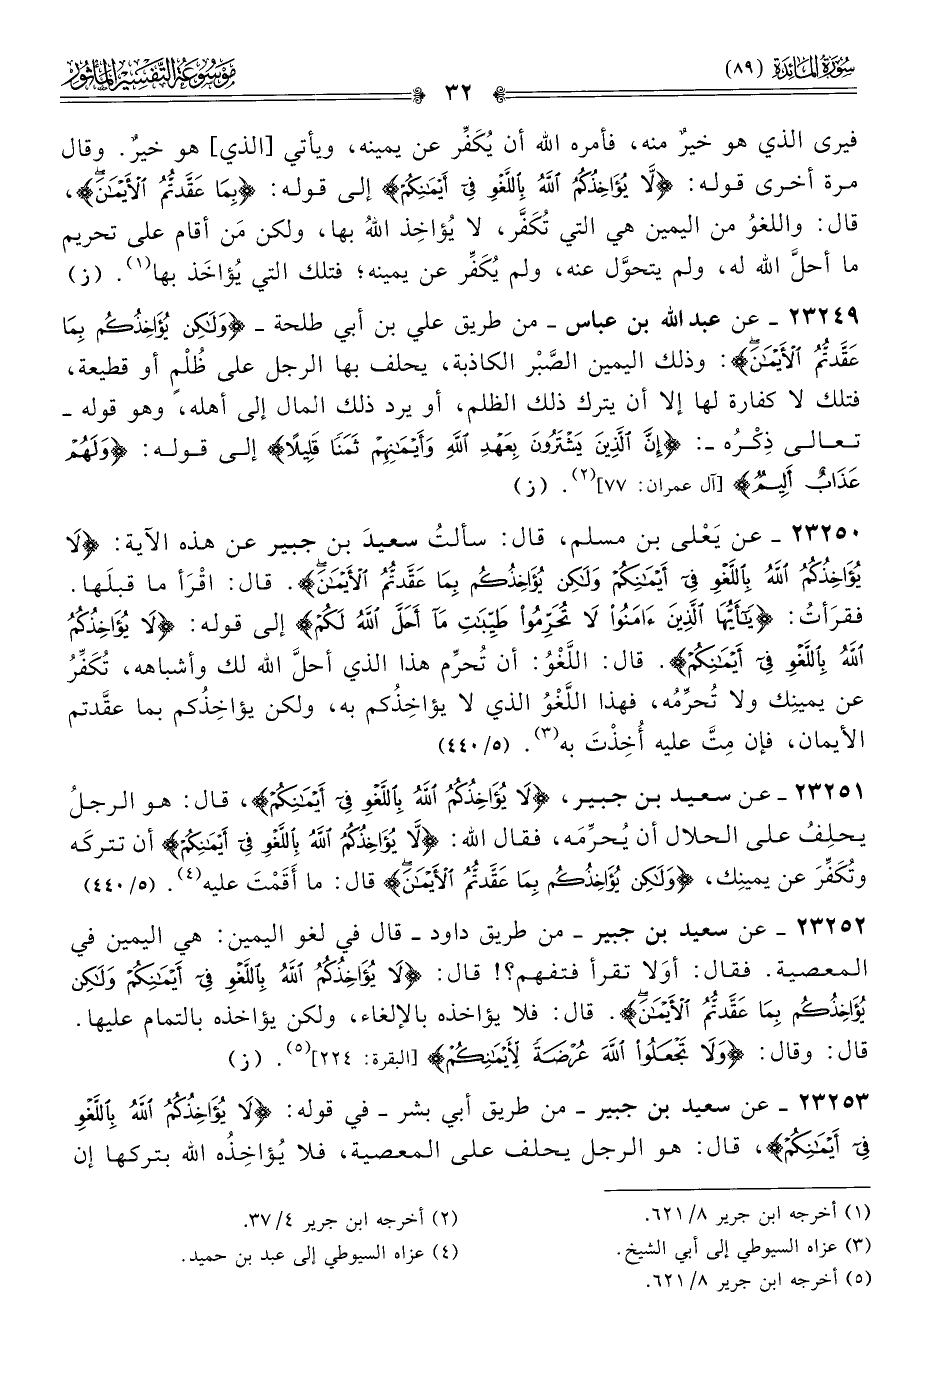 سُورَةُ المَائِدَة (٨٩)
مَوْسُوعَة التَّفْسِيْرِ المَأْثُور
٣٢
فيرى الذي هو خيرٌ منه، فأمره الله أن يُكَفِّر عن يمينه، ويأتي [الذي] هو خيرٌ. وقال
مرة أخرى قوله: ﴿لَّا يُؤَاخِذُكُمُ ٱللَّهُ بِٱللَّغْوِ فِىٓ أَيْمَٰنِكُمْ﴾ إلى قوله: ﴿بِمَا عَقَّدتُّمُ ٱلْأَيْمَٰنَۖ﴾،
قال: واللغوُ من اليمين هي التي تُكَفَّر، لا يُؤاخِذ اللهُ بها، ولكن مَن أقام على تحريم
ما أحلَّ الله له، ولم يتحوَّل عنه، ولم يُكَفِّر عن يمينه؛ فتلك التي يُؤاخَذ بها(١). (ز)
٢٣٢٤٩ ـ عن عبد الله بن عباس ـ من طريق علي بن أبي طلحة ـ ﴿وَلَٰكِن يُؤَاخِذُكُم بِمَا
عَقَّدتُّمُ ٱلْأَيْمَٰنَۖ﴾: وذلك اليمين الصَّبْر الكاذبة، يحلف بها الرجل على ظُلْمٍ أو قطيعة،
فتلك لا كفارة لها إلا أن يترك ذلك الظلم، أو يرد ذلك المال إلى أهله، وهو قوله ـ
تعالى ذِكْرُه ـ: ﴿إِنَّ ٱلَّذِينَ يَشْتَرُونَ بِعَهْدِ ٱللَّهِ وَأَيْمَٰنِهِمْ ثَمَنًا قَلِيلًا﴾ إلى قوله: ﴿وَلَهُمْ
عَذَابٌ أَلِيمٌ﴾ [آل عمران: ٧٧](٢). (ز)
٢٣٢٥٠ ـ عن يَعْلى بن مسلم، قال: سألتُ سعيدَ بن جبير عن هذه الآية: ﴿لَا
يُؤَاخِذُكُمُ ٱللَّهُ بِٱللَّغْوِ فِىٓ أَيْمَٰنِكُمْ وَلَٰكِن يُؤَاخِذُكُم بِمَا عَقَّدتُّمُ ٱلْأَيْمَٰنَۖ﴾. قال: اقْرَأ ما قبلَها.
فقرأتُ: ﴿يَٰٓأَيُّهَا ٱلَّذِينَ ءَامَنُوا۟ لَا تُحَرِّمُوا۟ طَيِّبَٰتِ مَآ أَحَلَّ ٱللَّهُ لَكُمْ﴾ إلى قوله: ﴿لَا يُؤَاخِذُكُمُ
ٱللَّهُ بِٱللَّغْوِ فِىٓ أَيْمَٰنِكُمْ﴾. قال: اللَّغْوُ: أن تُحرِّم هذا الذي أحلَّ الله لك وأشباهه، تُكَفِّرُ
عن يمينِك ولا تُحرِّمُه، فهذا اللَّغْوُ الذي لا يؤاخِذُكم به، ولكن يؤاخِذُكم بما عقَّدتم
الأيمان، فإن مِتَّ عليه أُخِذْتَ به(٣). (٤٤٠/٥)
٢٣٢٥١ ـ عن سعيد بن جبير، ﴿لَا يُؤَاخِذُكُمُ ٱللَّهُ بِٱللَّغْوِ فِىٓ أَيْمَٰنِكُمْ﴾، قال: هو الرجلُ
يحلِفُ على الحلال أن يُحرِّمَه، فقال الله: ﴿لَّا يُؤَاخِذُكُمُ ٱللَّهُ بِٱللَّغْوِ فِىٓ أَيْمَٰنِكُمْ﴾ أن تتركَه
وتُكفِّرَ عن يمينِك، ﴿وَلَٰكِن يُؤَاخِذُكُم بِمَا عَقَّدتُّمُ ٱلْأَيْمَٰنَۖ﴾ قال: ما أَقَمْتَ عليه(٤). (٤٤٠/٥)
٢٣٢٥٢ ـ عن سعيد بن جبير ـ من طريق داود ـ قال في لغو اليمين: هي اليمين في
المعصية. فقال: أوَلا تقرأ فتفهم؟! قال: ﴿لَا يُؤَاخِذُكُمُ ٱللَّهُ بِٱللَّغْوِ فِىٓ أَيْمَٰنِكُمْ وَلَٰكِن
يُؤَاخِذُكُم بِمَا عَقَّدتُّمُ ٱلْأَيْمَٰنَۖ﴾. قال: فلا يؤاخذه بالإلغاء، ولكن يؤاخذه بالتمام عليها.
قال: وقال: ﴿وَلَا تَجْعَلُوا۟ ٱللَّهَ عُرْضَةً لِّأَيْمَٰنِكُمْ﴾ [البقرة: ٢٢٤](٥). (ز)
٢٣٢٥٣ ـ عن سعيد بن جبير ـ من طريق أبي بشر ـ في قوله: ﴿لَا يُؤَاخِذُكُمُ ٱللَّهُ بِٱللَّغْوِ
فِىٓ أَيْمَٰنِكُمْ﴾، قال: هو الرجل يحلف على المعصية، فلا يُؤاخِذُه الله بتركها إن
(١) أخرجه ابن جرير ٨/ ٦٢١.
(٢) أخرجه ابن جرير ٤/ ٣٧.
(٣) عزاه السيوطي إلى أبي الشيخ.
(٤) عزاه السيوطي إلى عبد بن حميد.
(٥) أخرجه ابن جرير ٨/ ٦٢١.